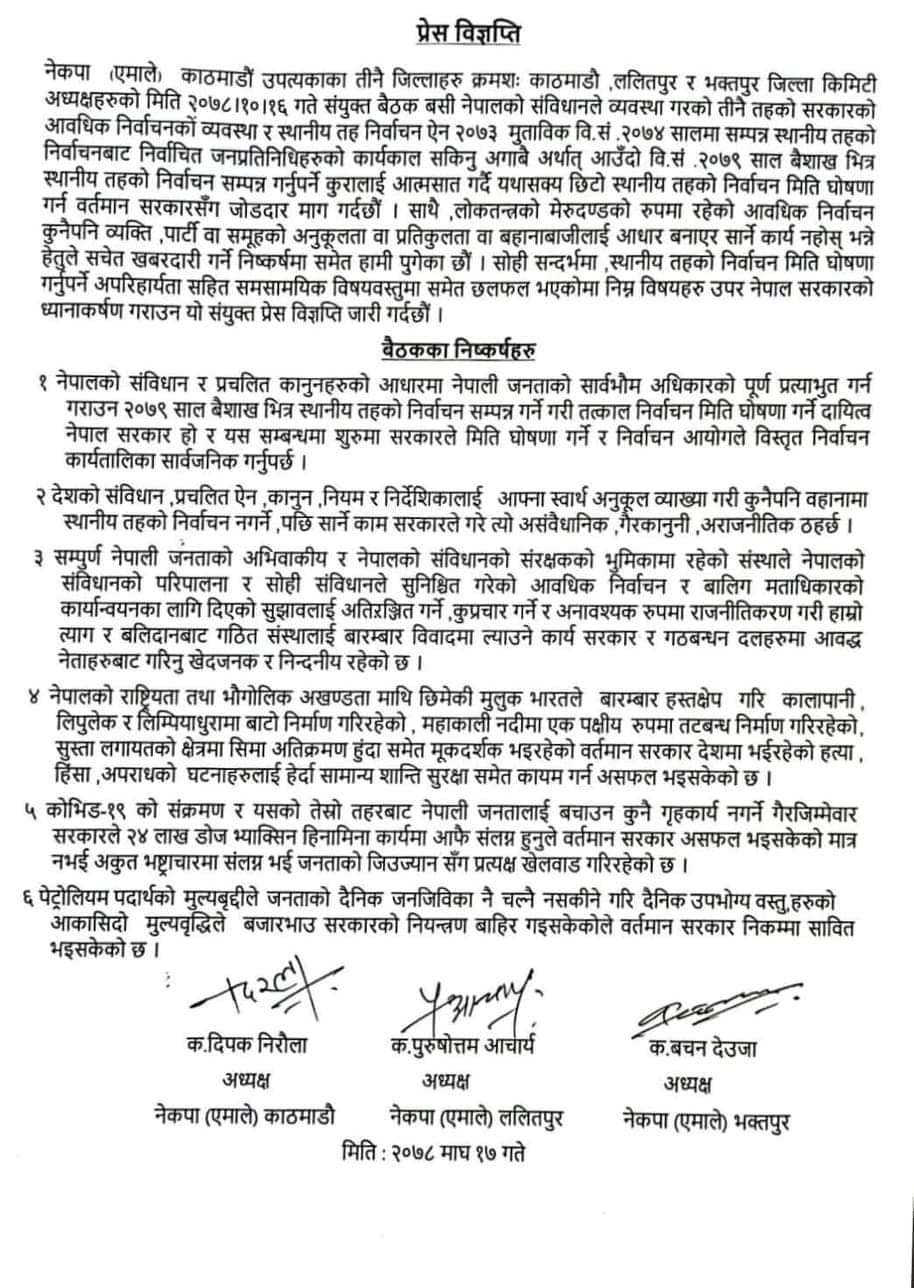 प्रेस विज्ञप्ति
नेकपा (एमाले) काठमाडौं उपत्यकाका तीनै जिल्लाहरु क्रमशः काठमाडौ ,ललितपुर र भक्तपुर जिल्ला किमिटी
अध्यक्षहरुको मिति २०७८।१०।१६ गते संयुक्त बैठक बसी नेपालको संविधानले व्यवस्था गरको तीनै तहको सरकारको
आवधिक निर्वाचनकों व्यवस्था र स्थानीय तह निर्वाचन ऐन २०७३ मुताविक वि.सं .२०७४ सालमा सम्पन्न स्थानीय तहको
निर्वाचनबाट निर्वाचित जनप्रतिनिधिहरुको कार्यकाल सकिनु अगाबै अर्थात् आउँदो वि.सं .२०७९ साल बैशाख भित्र
स्थानीय तहको निर्वाचन सम्पन्न गर्नुपर्ने कुरालाई आत्मसात गर्दै यथासक्य छिटो स्थानीय तहको निर्वाचन मिति घोषणा
गर्न वर्तमान सरकारसँग जोडदार माग गर्दछौं । साथै ,लोकतन्त्रको मेरुदण्डको रुपमा रहेको आवधिक निर्वाचन
कुनैपनि व्यक्ति ,पार्टी वा समूहको अनुकूलता वा प्रतिकुलता वा बहानाबाजीलाई आधार बनाएर सार्ने कार्य नहोस् भन्ने
हेतुले सचेत खबरदारी गर्ने निष्कर्षमा समेत हामी पुगेका छौं । सोही सन्दर्भमा ,स्थानीय तहको निर्वाचन मिति घोषणा
गर्नुपर्ने अपरिहार्यता सहित समसामयिक विषयवस्तुमा समेत छलफल भएकोमा निम्न विषयहरु उपर नेपाल सरकारको
ध्यानाकर्षण गराउन यो संयुक्त प्रेस विज्ञप्ति जारी गर्दछौं ।
बैठकका निष्कर्षहरु
१ नेपालको संविधान र प्रचलित कानुनहरुको आधारमा नेपाली जनताको सार्वभौम अधिकारको पूर्ण प्रत्याभुत गर्न
गराउन २०७९ साल बैशाख भित्र स्थानीय तहको निर्वाचन सम्पन्न गर्ने गरी तत्काल निर्वाचन मिति घोषणा गर्ने दायित्व
नेपाल सरकार हो र यस सम्बन्धमा शुरुमा सरकारले मिति घोषणा गर्ने र निर्वाचन आयोगले विस्तृत निर्वाचन
कार्यतालिका सार्वजनिक गर्नुपर्छ ।
२ देशको संविधान ,प्रचलित ऐन ,कानुन ,नियम र निर्देशिकालाई आफ्ना स्वार्थ अनुकूल व्याख्या गरी कुनैपनि वहानामा
स्थानीय तहको निर्वाचन नगर्ने ,पछि सार्ने काम सरकारले गरे त्यो असंवैधानिक ,गैरकानुनी ,अराजनीतिक ठहर्छ ।
३ सम्पुर्ण नेपाली जनताको अभिवाकीय र नेपालको संविधानको संरक्षकको भुमिकामा रहेको संस्थाले नेपालको
संविधानको परिपालना र सोही संविधानले सुनिश्चित गरेको आवधिक निर्वाचन र बालिग मताधिकारको
कार्यान्वयनका लागि दिएको सुझावलाई अतिरञ्जित गर्ने ,कुप्रचार गर्ने र अनावश्यक रुपमा राजनीतिकरण गरी हाम्रो
त्याग र बलिदानबाट गठित संस्थालाई बारम्बार विवादमा ल्याउने कार्य सरकार र गठबन्धन दलहरुमा आवद्ध
नेताहरुबाट गरिनु खेदजनक र निन्दनीय रहेको छ ।
४ नेपालको राष्ट्रियता तथा भौगोलिक अखण्डता माथि छिमेकी मुलुक भारतले बारम्बार हस्तक्षेप गरि कालापानी ,
लिपुलेक र लिम्पियाधुरामा बाटो निर्माण गरिरहेको , महाकाली नदीमा एक पक्षीय रुपमा तटबन्ध निर्माण गरिरहेको,
सुस्ता लगायतको क्षेत्रमा सिमा अतिक्रमण हुंदा समेत मूकदर्शक भइरहेको वर्तमान सरकार देशमा भईरहेको हत्या ,
हिंसा ,अपराधको घटनाहरुलाई हेर्दा सामान्य शान्ति सुरक्षा समेत कायम गर्न असफल भइसकेको छ ।
५ कोभिड-१९ को संक्रमण र यसको तेस्रो तहरबाट नेपाली जनतालाई बचाउन कुनै गृहकार्य नगर्ने गैरजिम्मेवार
सरकारले २४ लाख डोज भ्याक्सिन हिनामिना कार्यमा आफै संलग्न हुनुले वर्तमान सरकार असफल भइसकेको मात्र
नभई अकुत भष्ट्राचारमा संलग्न भई जनताको जिउज्यान सँग प्रत्यक्ष खेलवाड गरिरहेको छ ।
६ पेट्रोलियम पदार्थको मुल्यबृद्दीले जनताको दैनिक जनजिविका नै चल्नै नसकीने गरि दैनिक उपभोग्य वस्तु,हरुको
आकासिदो मुल्यवृद्धिले बजारभाउ सरकारको नियन्त्रण बाहिर गइसकेकोले वर्तमान सरकार निकम्मा सावित
भइसकेको छ ।
क.दिपक निरौला क.पुरुषोत्तम आचार्य क.बचन देउजा
अध्यक्ष अध्यक्ष अध्यक्ष
नेकपा (एमाले) काठमाडौ नेकपा (एमाले) ललितपुर नेकपा (एमाले) भक्तपुर
मिति : २०७८ माघ १७ गते